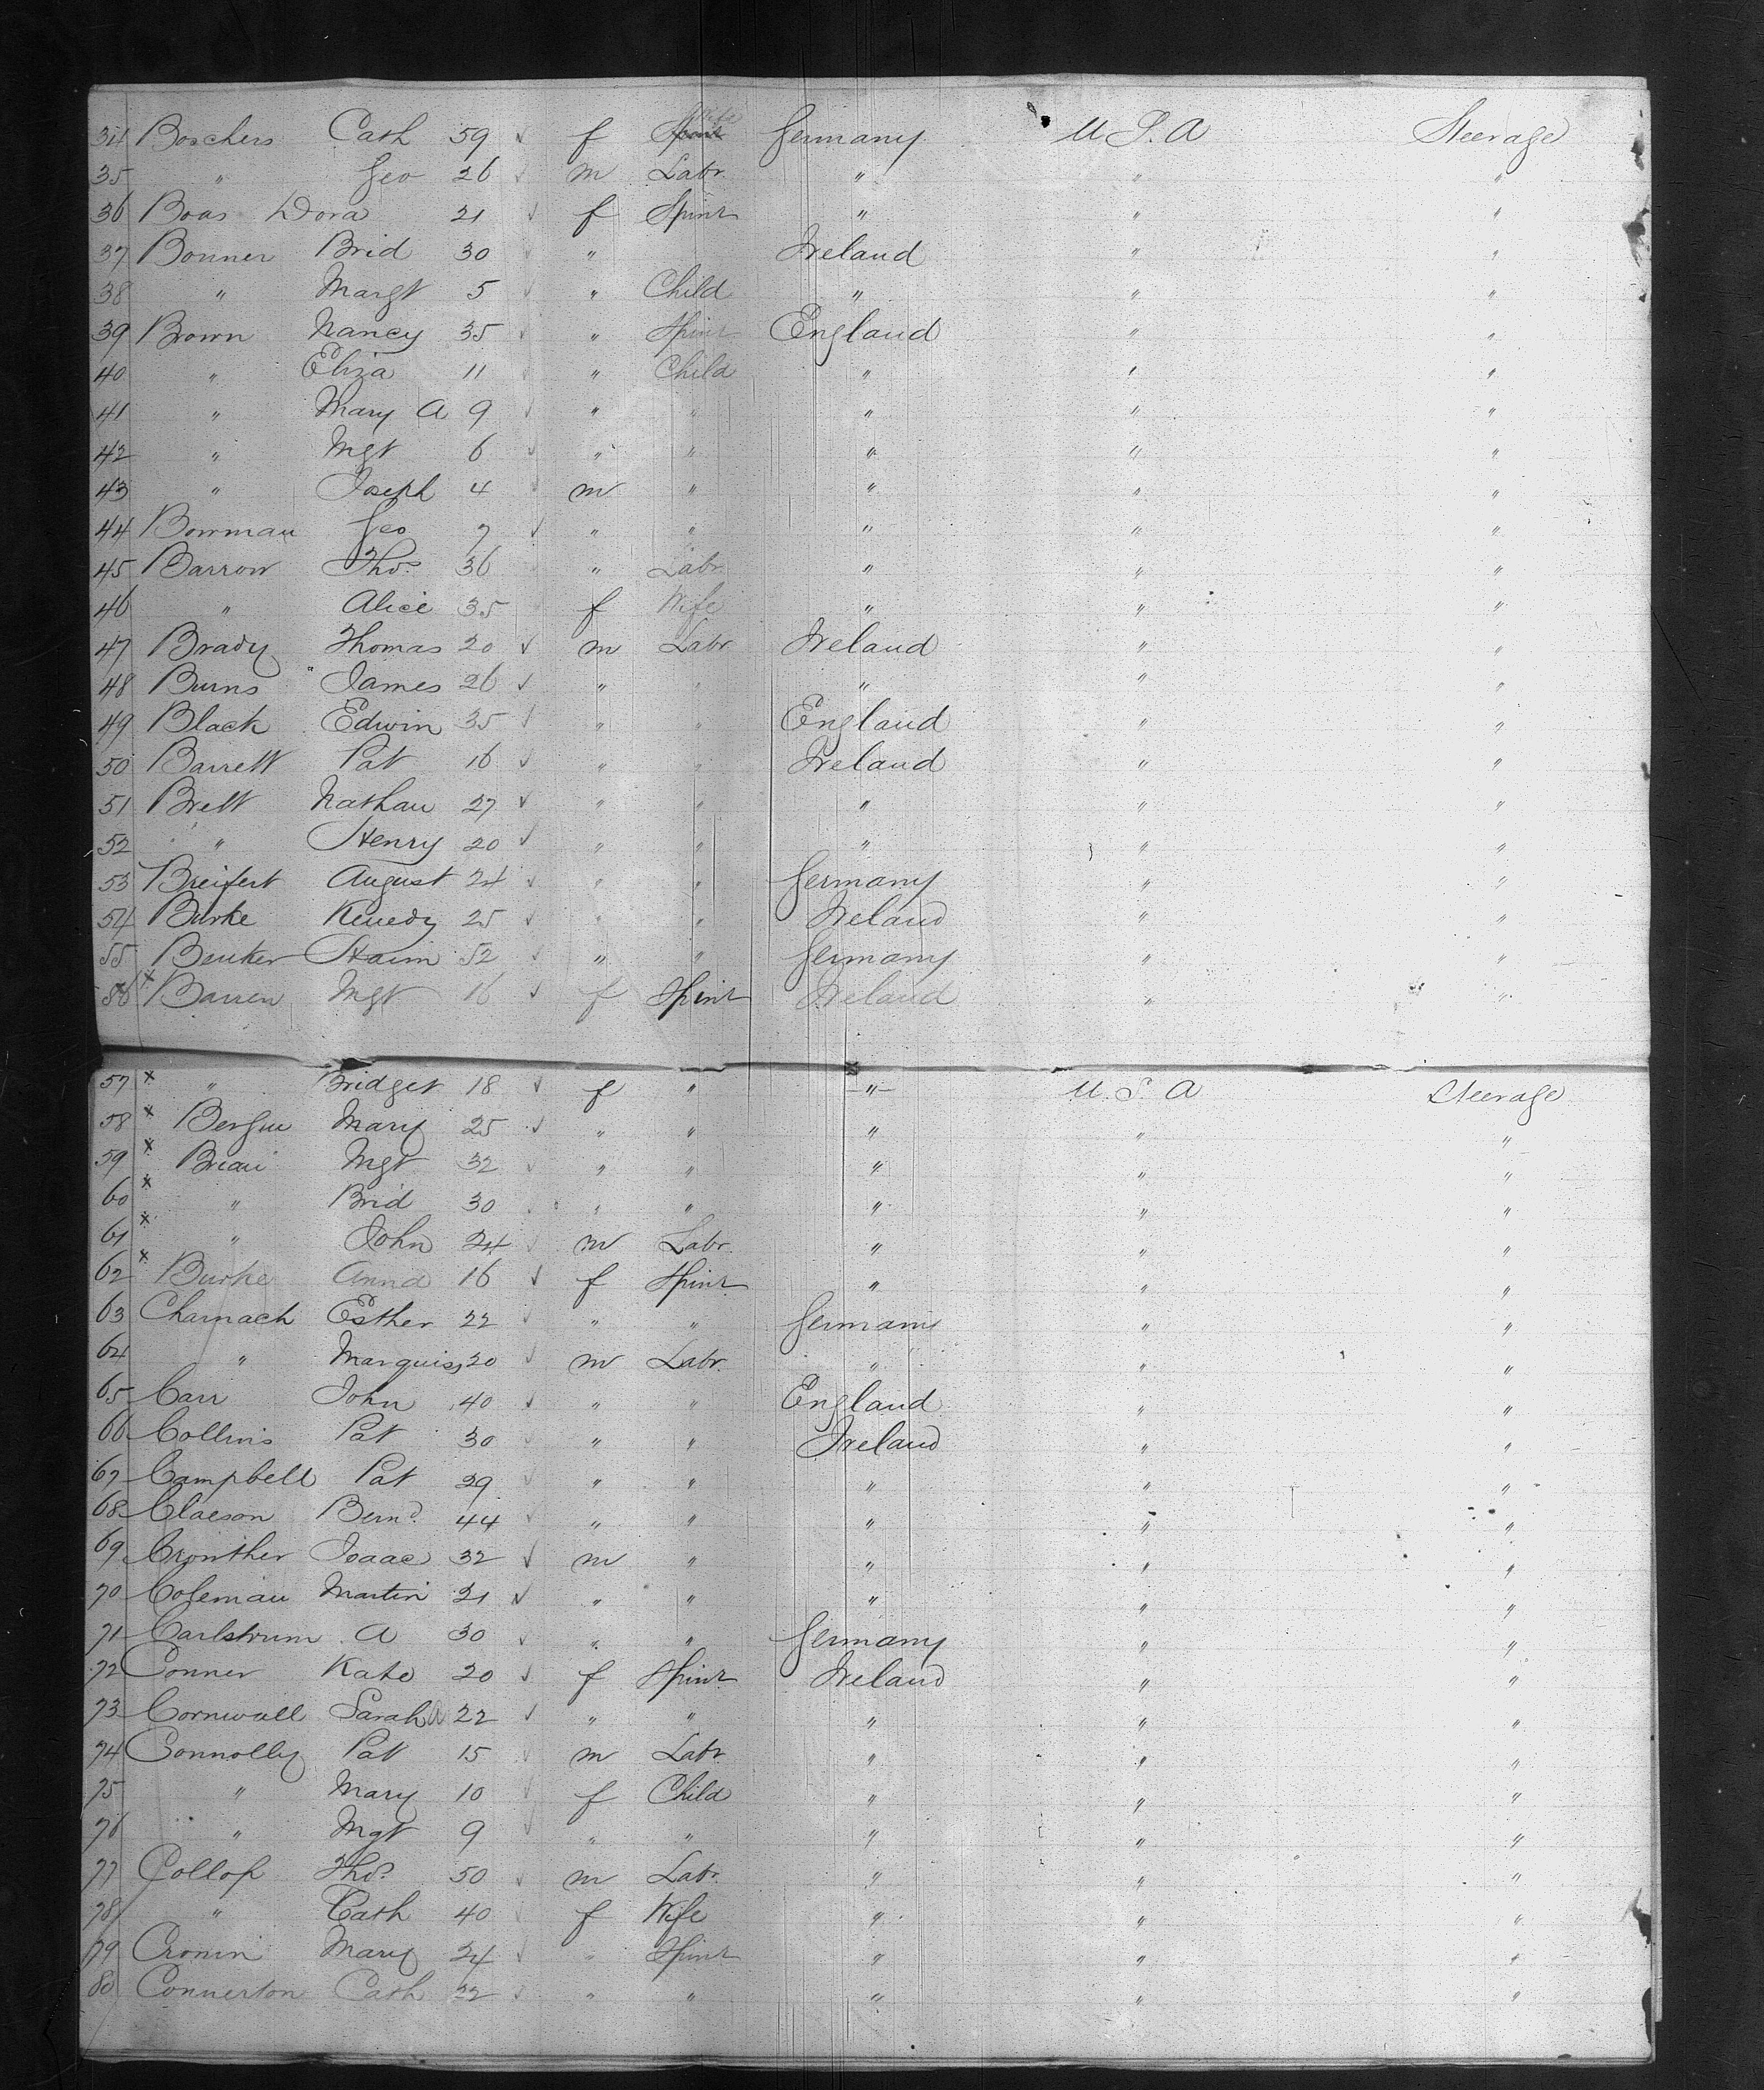 34 Boschers Cath 59 ✓ f Wife Germany U.S.A Steerage
35 " Geo 26 ✓ m Labr " " "
36 Boas Dora 21 ✓ f Spinr " " "
37 Bonner Brid 30 ✓ " Ireland " "
38 " Margt 5 ✓ " Child " " "
39 Brown Nancy 35 ✓ " Spinr England " "
40 " Eliza 11 ✓ " Child " " "
41 " Mary A 9 ✓ " " " " "
42 " Mgt 6 ✓ " " " " "
43 " Joseph 4 ✓ m " " " "
44 Bowman Geo 7 ✓ " " " " "
45 Barrow Thos 36 " Labr " " "
46 " Alice 35 f Wife " " "
47 Brady Thomas 20 ✓ m Labr Ireland " "
48 Burns James 26 ✓ " " " " "
49 Black Edwin 35 ✓ " " England " "
50 Barrett Pat 16 ✓ " " Ireland " "
51 Brett Nathan 27 ✓ " " " " "
52 " Henry 20 ✓ " " " " "
53 Breifert August 24 ✓ " " Germany " "
54 Burke Kenedy 25 ✓ " " Ireland " "
55 Beuker Haim 52 ✓ " " Germany " "
56 x Barren Mgt 16 ✓ f Spinr Ireland " "
57 x " Bridget 18 ✓ f " " U.S.A Steerage
58 x Bergin Mary 25 ✓ " " " " "
59 x Briai Mgt 32 ✓ " " " " "
60 x " Brid 30 " " " " "
61 x " John 24 ✓ m Labr " " "
62 x Burke Anna 16 ✓ f Spinr " " "
63 Charnach Esther 22 ✓ " " Germany " "
64 " Marquiss 20 ✓ m Labr " " "
65 Carr John 40 ✓ " " England " "
66 Collins Pat 30 ✓ " " Ireland " "
67 Campbell Pat 29 ✓ " " " " "
68 Claeson Bernd 44 ✓ " " " " "
69 Crowther Isaac 32 ✓ m " " " "
70 Coleman Martin 21 ✓ " " " " "
71 Carlstrum A 30 ✓ " " Germany " "
72 Conner Kate 20 ✓ f Spinr Ireland " "
73 Cornwall Sarah A 22 ✓ " " " " "
74 Connolly Pat 15 ✓ m Labr " " "
75 " Mary 10 ✓ f Child " " "
76 " Mgt 9 ✓ " " " " "
77 Collop Thos 50 ✓ m Labr " " "
78 " Cath 40 ✓ f Wife " " "
79 Cronin Mary 24 ✓ " Spinr " " "
80 Connerton Cath 22 ✓ " " " " "